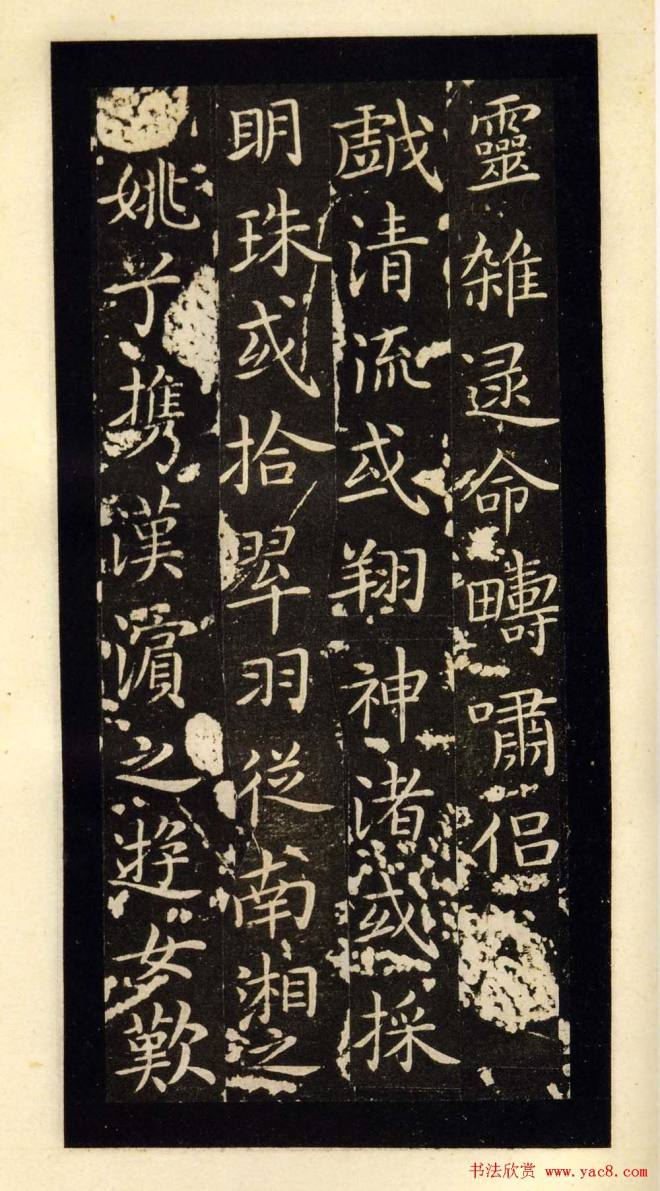 靈雜遝命疇嘯侶
戲清流或翔神渚或採
明珠或拾翠羽從南湘之
姚兮携漢濱之遊女歎
书法欣赏 www.yac8.com